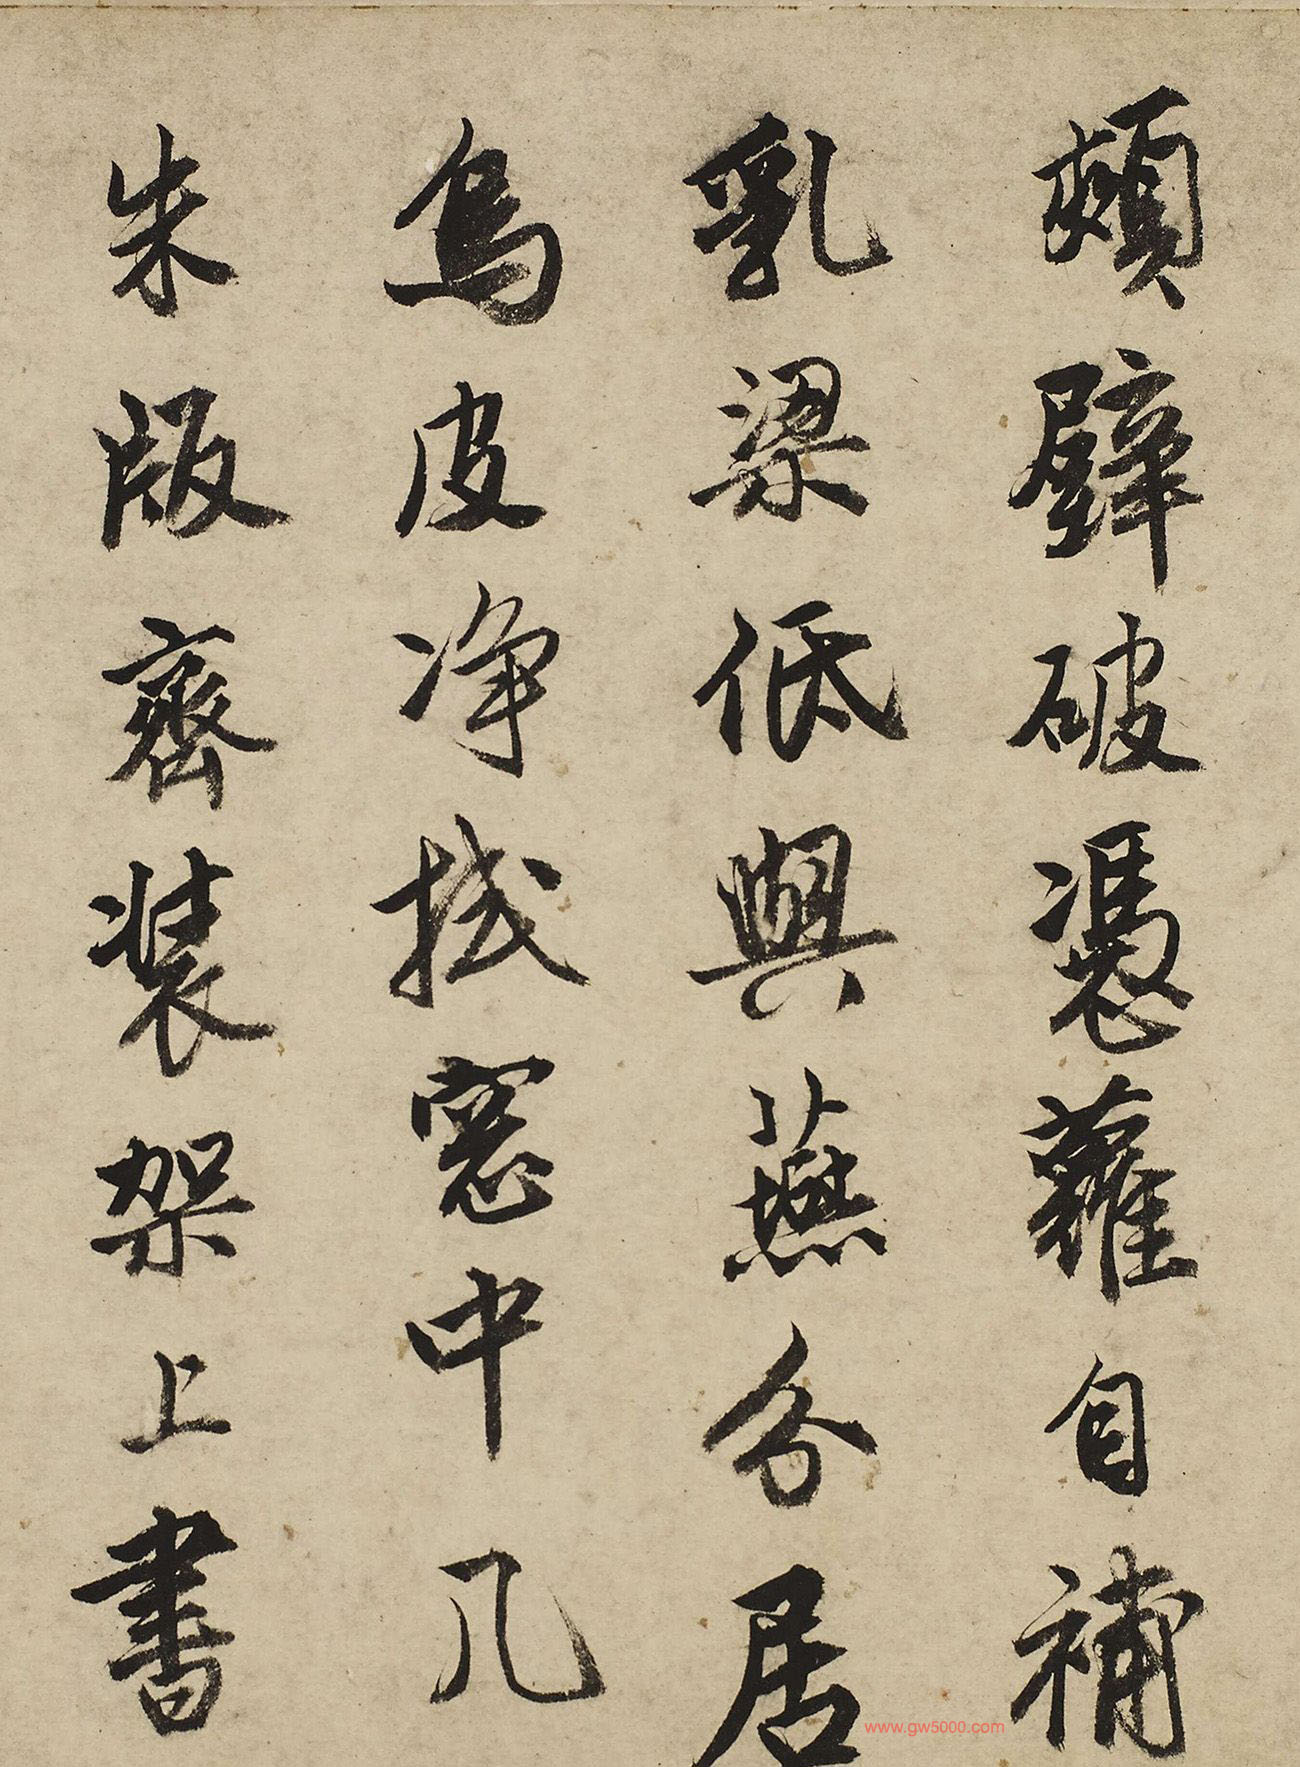 頹壁破憑蘿自補
乳梁低與燕分居
烏皮净拭窓中几
朱版齊装架上書
www.gw5000.com